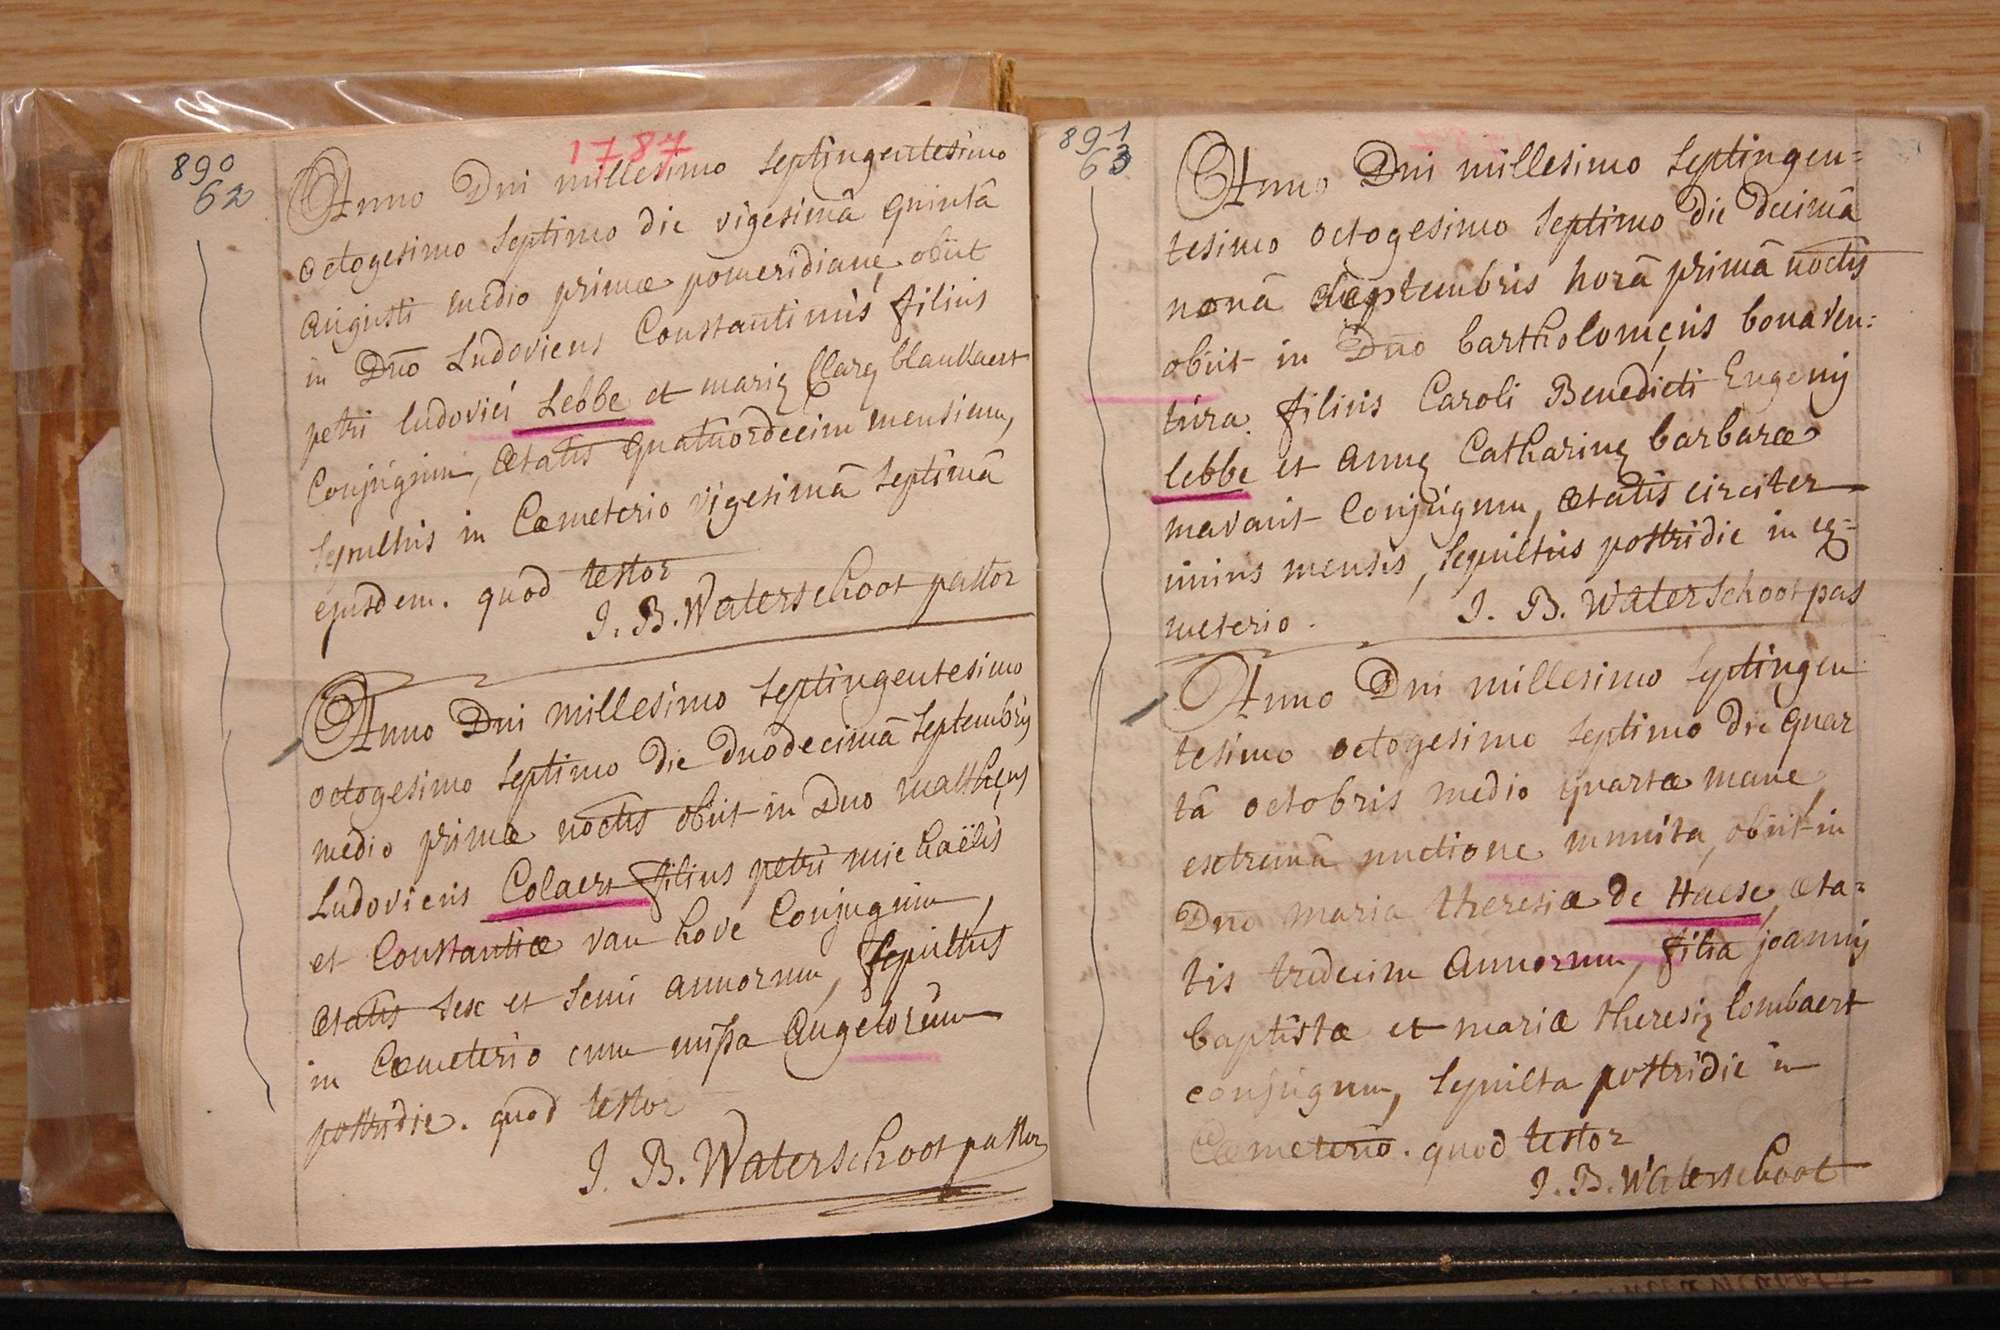 890
62
1787
Anno Dni millesimo septingentesimo
octogesimo septimo die vigesimâ quintâ
augusti medio primæ pomeridianæ obiit
in Dno Ludovicus Constantinus filius
petri ludovici Lebbe et mariæ Claræ blankaert
Conjugum, ætatis quatuordecim mensium,
sepultus in Cæmeterio vigesimâ septimâ
ejusdem. quod testor
J. B. Waterschoot pastor
Anno Dni millesimo septingentesimo
octogesimo septimo die duodecimâ septembris
medio primæ noctis obiit in Dno matthæus
Ludovicus Colaert filius petri michaëlis
et Constantiæ van hove Conjugum,
ætatis sex et semi annorum, sepultus
in Cæmeterio cum missa Angelorum
postridie. quod testor
J. B. Waterschoot pastor
891
63
Anno Dni millesimo septingen=
tesimo octogesimo septimo die decimâ
nonâ septembris horâ primâ noctis
obiit in Dno bartholomæus bonaven=
tura filius Caroli Benedicti Eugenij
lebbe et annæ Catharinæ barbaræ
mavaut Conjugum, ætatis circiter
unius mensis, sepultus postridie in cæ=
meterio. J. B. Waterschoot pas
Anno Dni millesimo septingen
tesimo octogesimo septimo die quar
tâ octobris medio quartæ mane
extremâ unctione munita, obiit in
Dno maria theresiæ de Haese, æta=
tis tredecim annorum, filia joannis
baptistæ et mariæ theresiæ lombaert
conjugum, sepulta postridie in
Cæmeterio. quod testor
J. B. Waterschoot